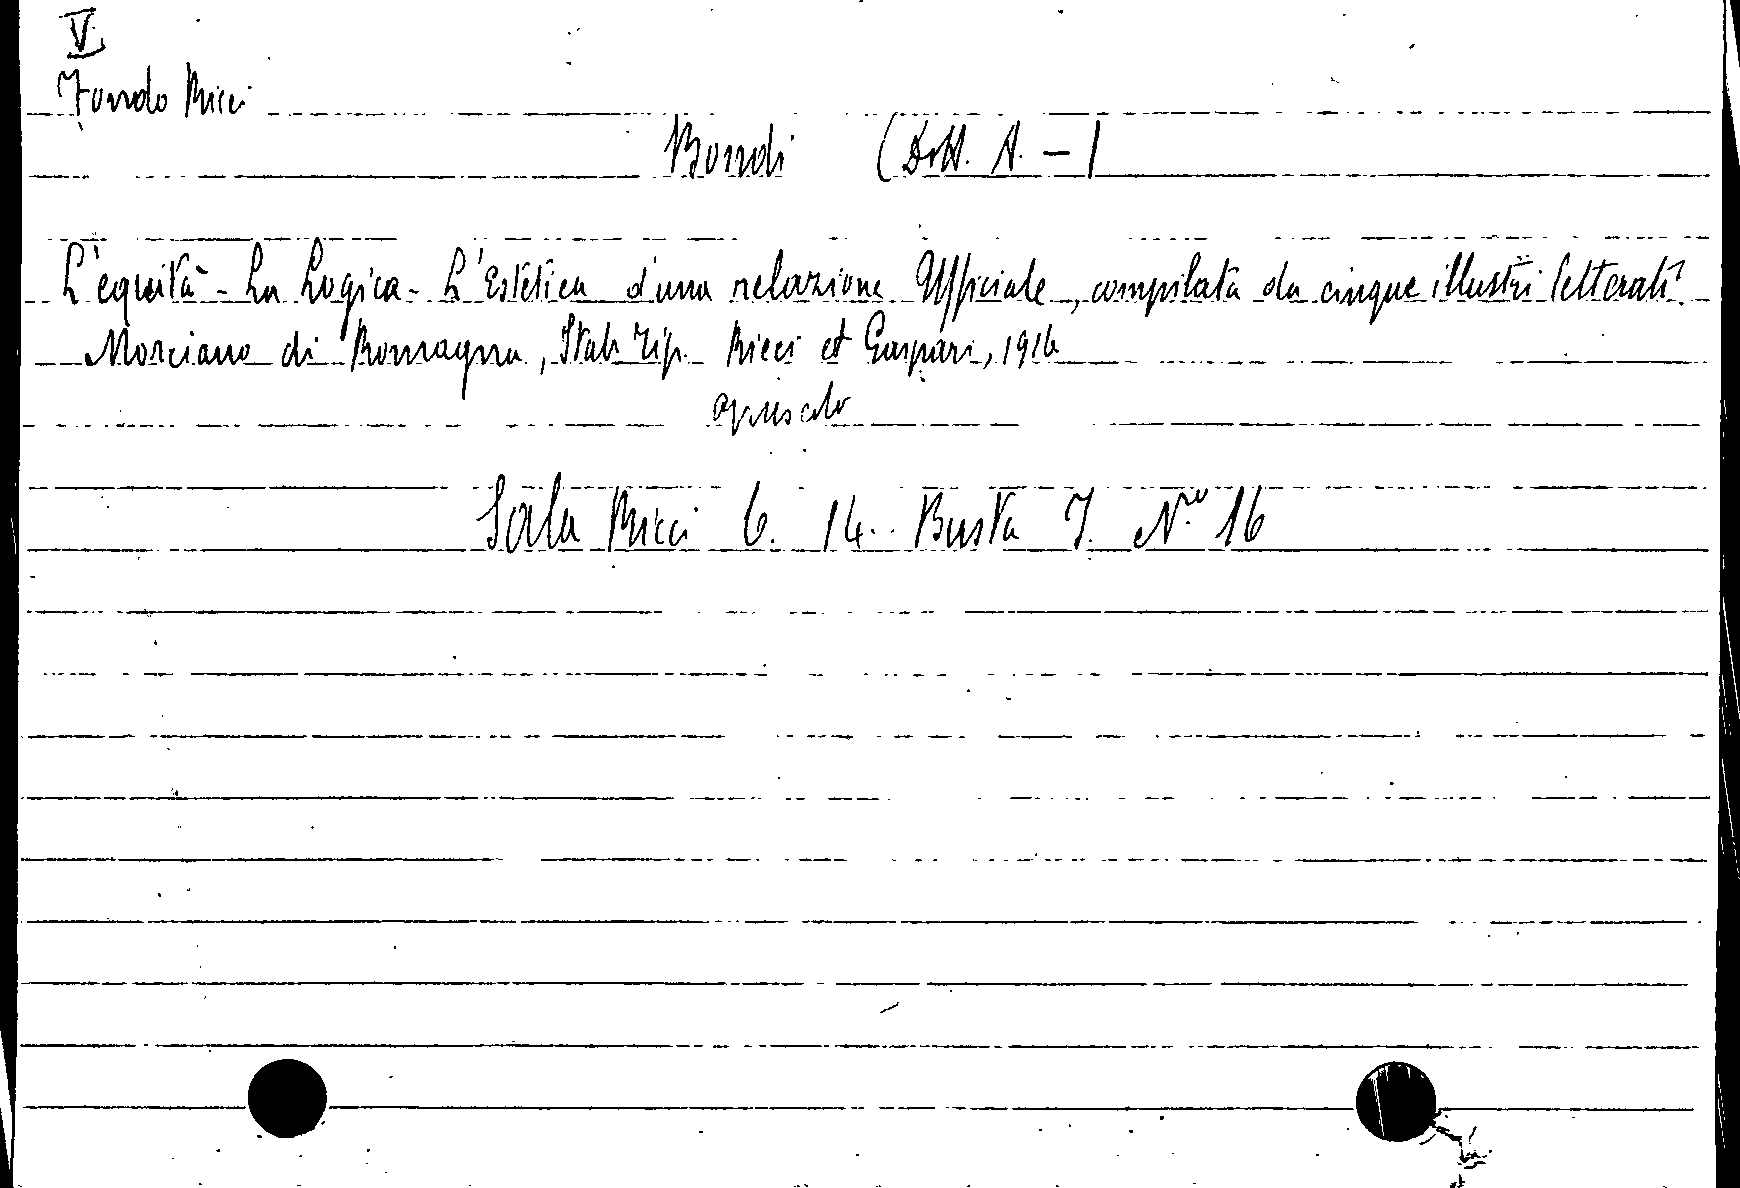 V
Fondo Ricci
Bondi (Dott. A. -)
L'equità - La Logica - L'Estetica d'una relazione Ufficiale, compilata da cinque illustri letterati.
Morciano di Romagna, Stab. Tip. Ricci et Gaspari, 1916
opuscolo
Sala Ricci C. 14. Busta I. N.ro 16